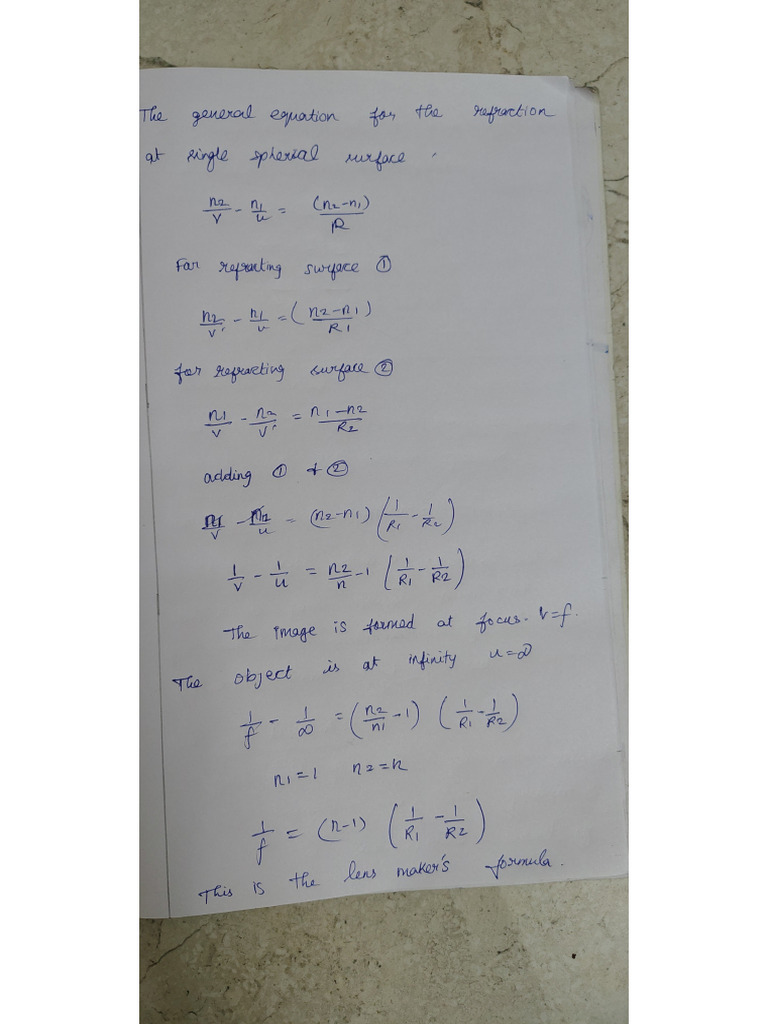 The general equation for the refraction
at single spherical surface.
n2/v - n1/u = (n2-n1)/R
For refracting surface ①
n2/v' - n1/u = (n2-n1/R1)
for refracting surface ②
n1/v - n2/v' = n1-n2/R2
adding ① & ②
n1/v - n1/u = (n2-n1) (1/R1 - 1/R2)
1/v - 1/u = n2/n -1 (1/R1 - 1/R2)
The image is formed at focus. V=f.
The object is at infinity u=∞
1/f - 1/∞ = (n2/n1 -1) (1/R1 - 1/R2)
n1=1 n2=n
1/f = (n-1) (1/R1 - 1/R2)
This is the lens maker's formula.